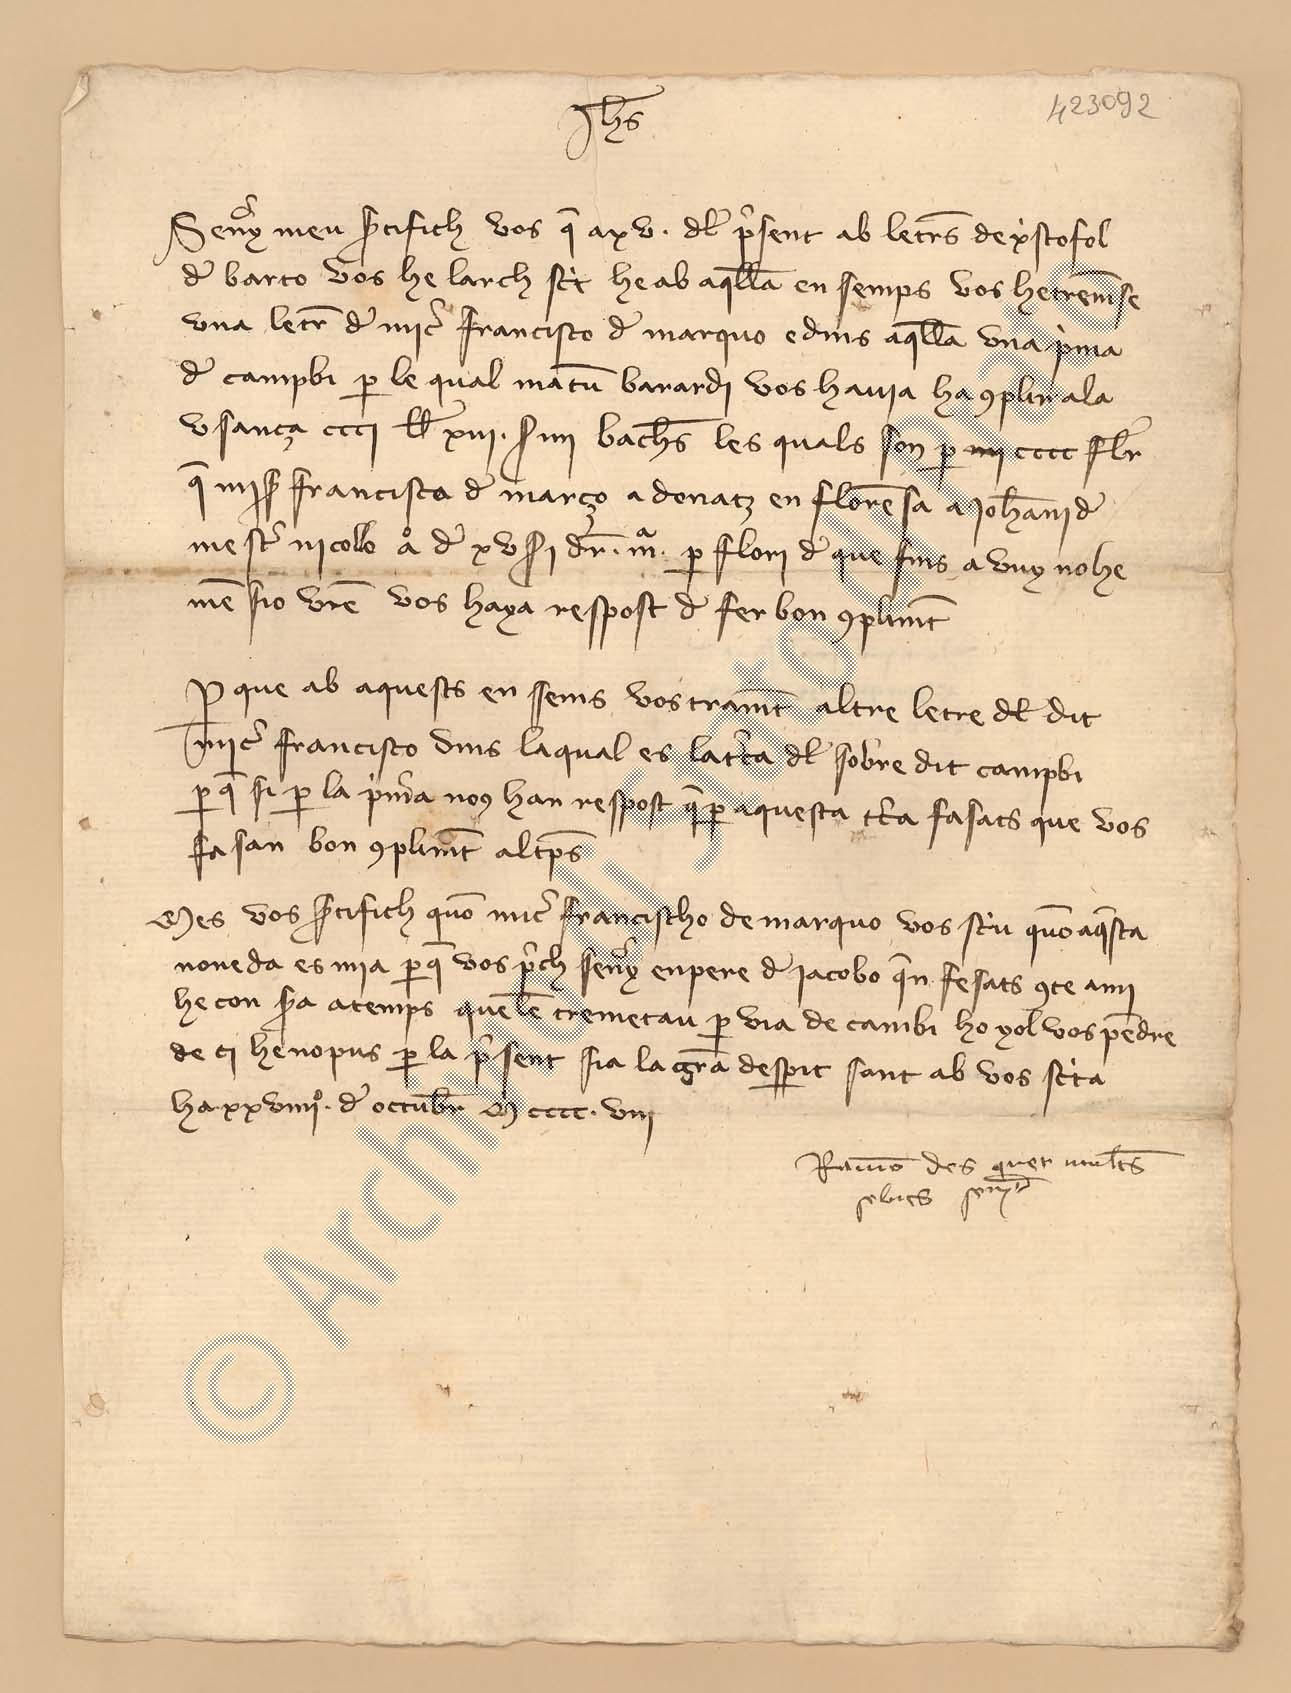 Jhs
423092
Senyor meu sertifich vos q̄ a xv. dl̄ p̄sent ab letr̄s de xp̄stofol
de barto vos he larch sc̍t he ab aq̄lla en semps vos he trem̄se
vna letr̄ de mic̄ francisco de marquo e dins aq̄lla vna p̍ma
de campbi ꝑ le qual matū barardi vos hauia ha ꝯplir a la
vsança ccci ll̄ xvii. s̄ iiii bach̄s les quals son ꝑ cccc flr̄
q̄ mis̄ francisco de março a donatz en florēsa a Johāni de
mestr̄ nicolo aº de xv s̄ i dr̄. mª. ꝑ flori de que fins a vuy no he
mēsio vrē vos haya respost de fer bon ꝯplimēt
Ꝑ que ab aquests en ssems vos tramēt altre letre dl̄ dit
mic̄ francisco dins la qual es la tc̍a dl̄ sobre dit campbi
ꝑ q̄ si ꝑ la p̍mā noꝯ han respost q̄ ꝑ aquesta tc̍a fasats que vos
fasan bon ꝯplimēt altr̄s
Mes vos s̄tifich quō mic̄ francischo de marquo vos sc̍iu quō aq̄sta
moneda es mia ꝑ q̄ vos p̄ch senyor en pere de Jacobo q̄n fesats ꝯte a mi
he con s̄a a temps quel ē tremetau ꝑ via de cambi ho yol vos pēdre
de ci he nopus ꝑ la p̄sent sia la grā despit sant ab vos sc̍ita
ha xxviiiiº. de octubr̄ Mcccc.viii
Ramō des quer mult̄s